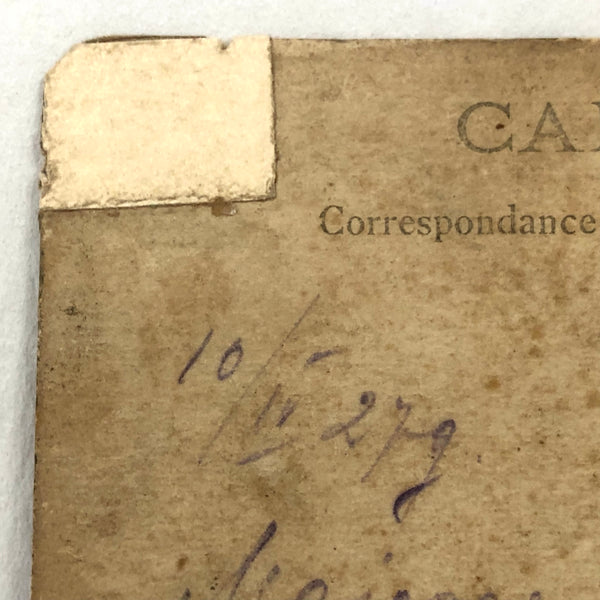 CAR
Correspondance
10/II 27g.